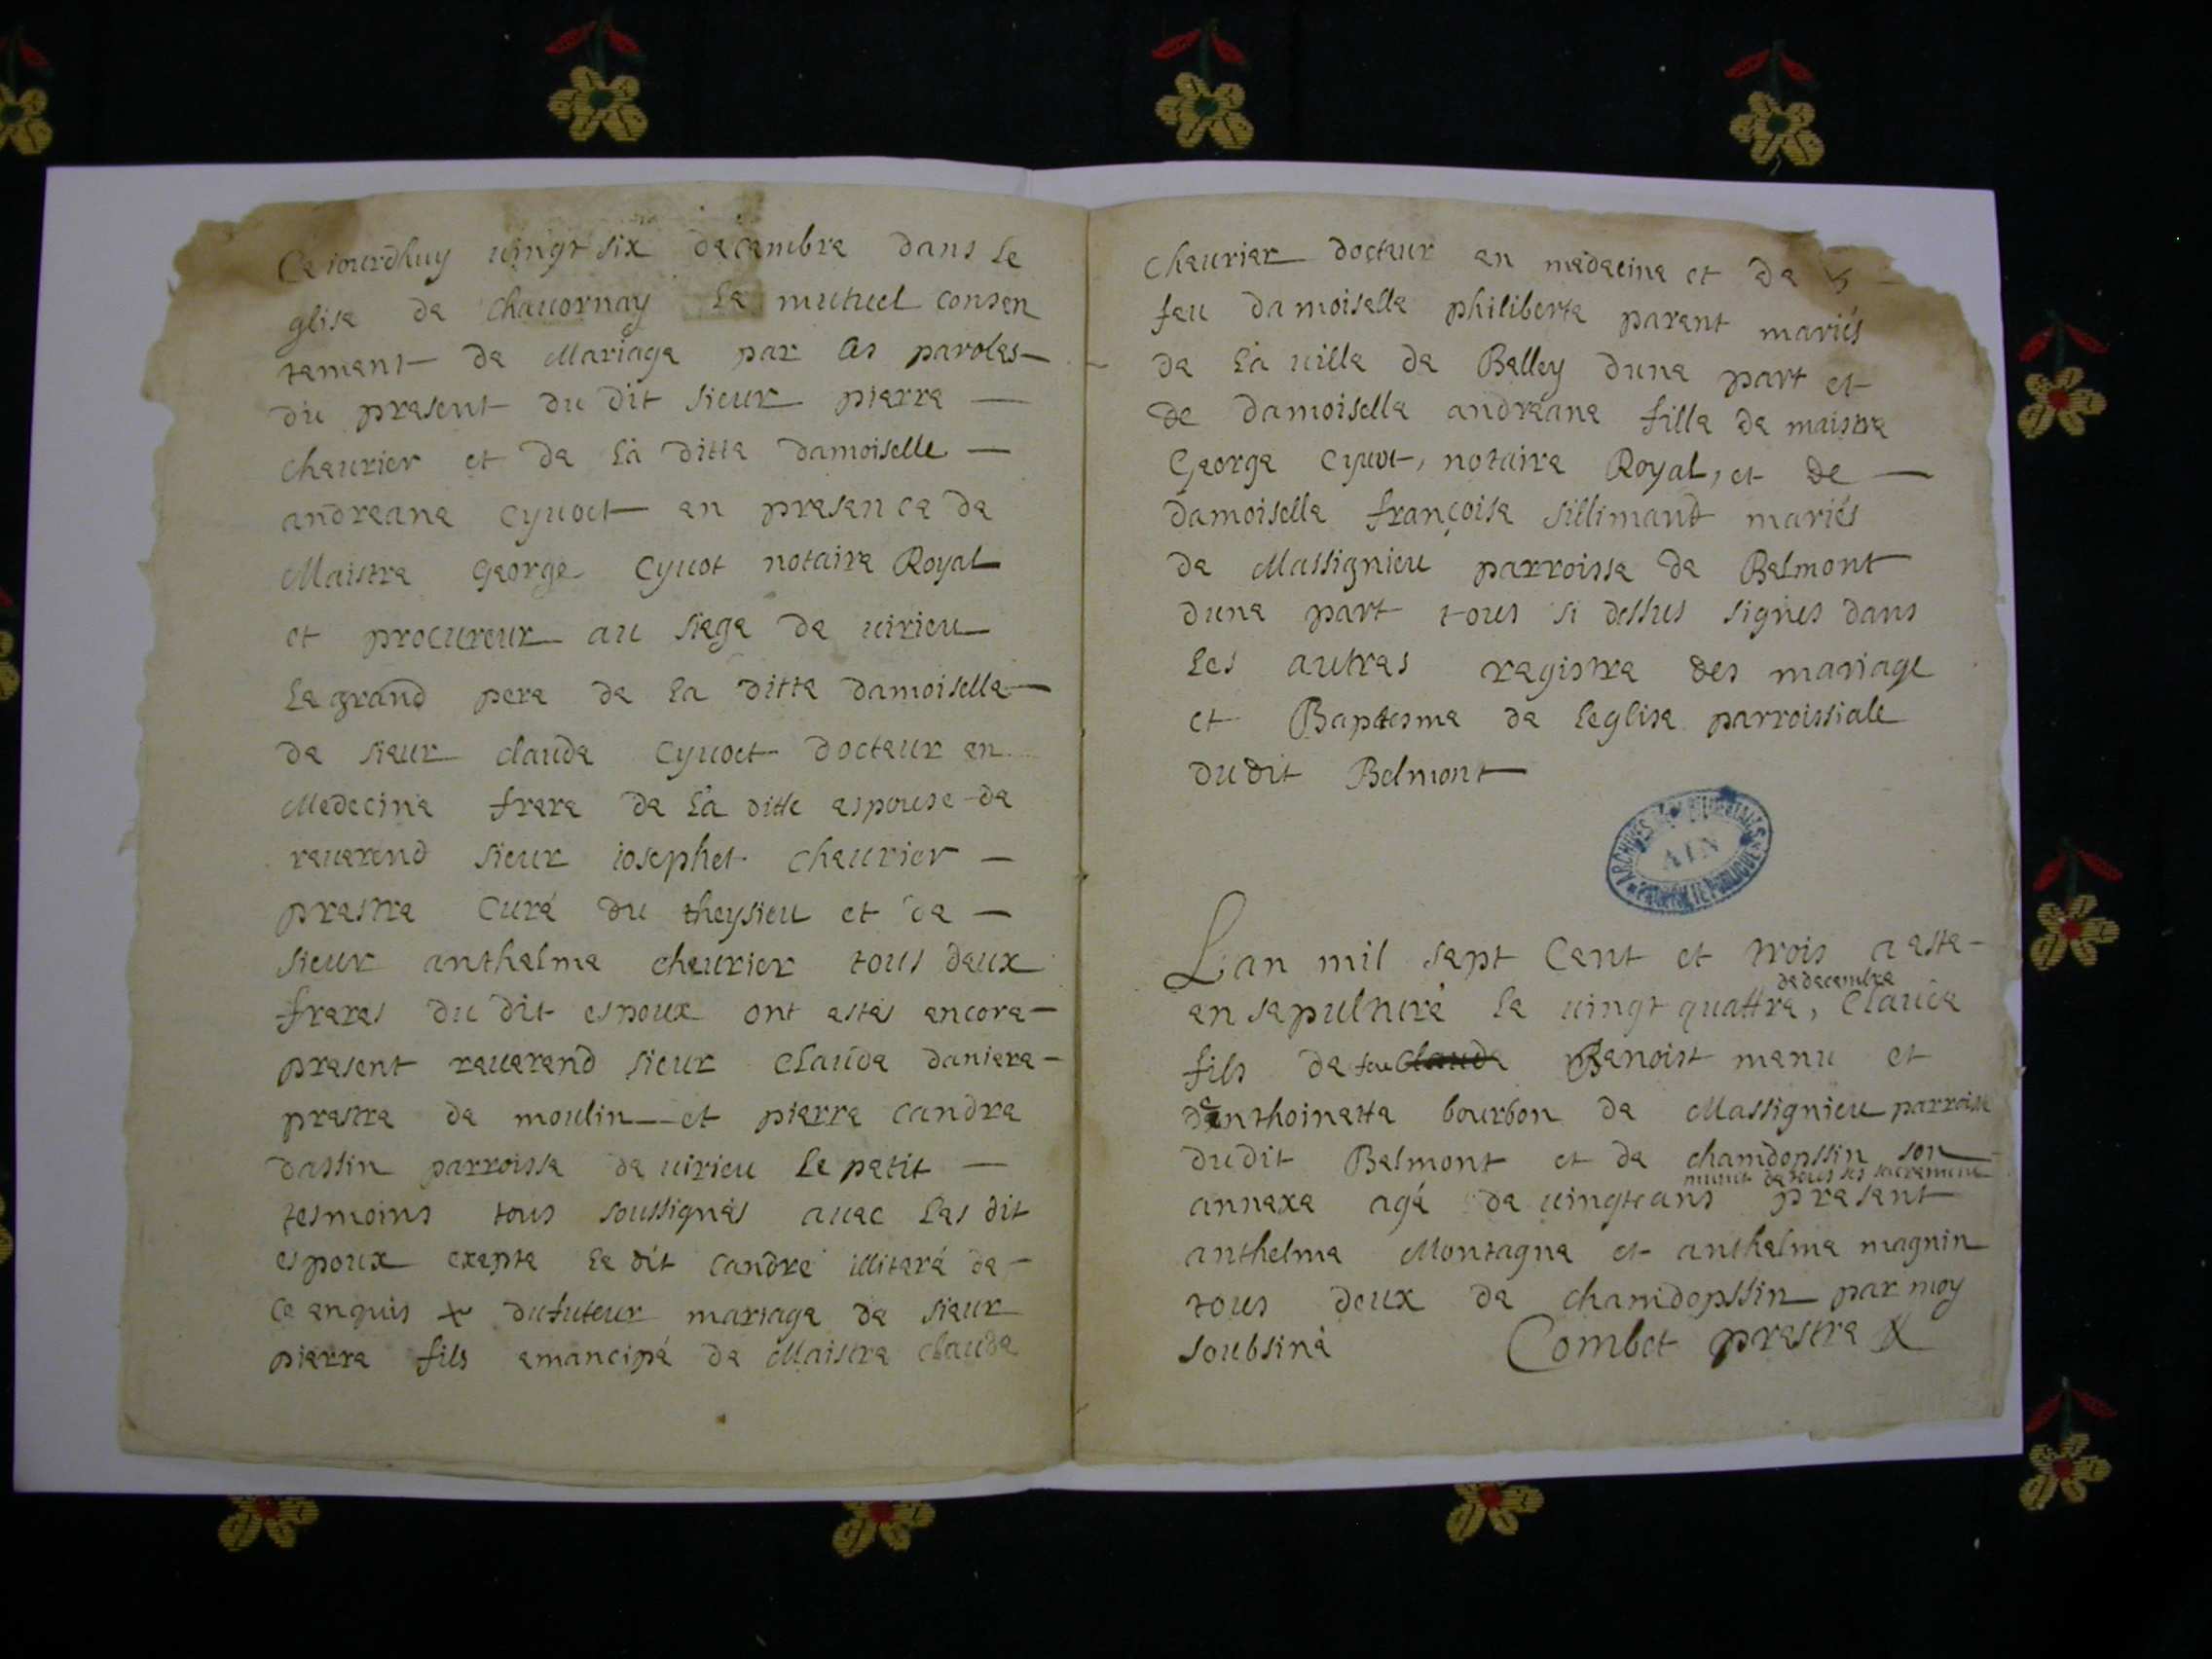 Ce iourdhuy uingt six decembre dans le
glise de chauornay le mutuel consen
tement de Mariage par les paroles
du present du dit sieur pierre
cheurier et de la ditte damoiselle
andreane cyuoct en presence de
Maistre george Cyuot notaire Royal
et procureur au siege de uirieu
le grand pere de la ditte damoiselle
de sieur claude Cyuoct docteur en
Medecine frere de la ditte espouse de
reuerend sieur iosephet cheurier
prestre Curé du theysieu et de
sieur anthelme cheurier tous deux
freres du dit espoux ont estés encore
present reuerend sieur claude daniere
prestre de moulin et pierre candre
dassin parroisse de uirieu le petit
tesmoins tous soussignés auec les dit
espoux exepte le dit candre illiteré de
ce enquis du futeur mariage de sieur
pierre fils emancipé de Maistre claude
cheurier docteur en medecine et de
feu damoiselle philiberte parent mariés
de la uille de Belley dune part et
de damoiselle andréane fille de maistre
George Cyuot, notaire Royal, et de
damoiselle françoise sillimand mariés
de Massignieu parroisse de Belmont
dune part tous si dessus signes dans
les autres registre des mariage
et Baptesme de leglise parroissiale
dudit Belmont
ARCHIVES DÉPARTEMENTALES
AIN
PROPRIÉTÉ PUBLIQUE
Lan mil sept Cent et trois a este
de decembre
en sepulturé le uingt quattre, Claude
fils de feu claude Benoist menu et
denthoinette bourbon de Massignieu parroisse
dudit Belmont et de chamdopssin son
munit de tous ses sacrement
annexe agé de uingt ans present
anthelme Montagne et anthelme magnin
tous deux de chamdopssin par moy
soubsiné Combet prestre